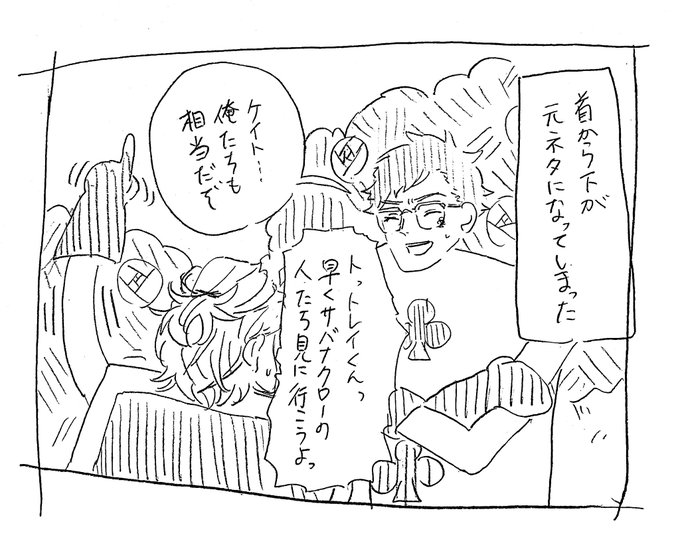 首から下が
元ネタになってしまった
ケイト…
俺たちも
相当だぞ
トっトレイくんっ
早くサバナクローの
人たち見に行こうよっ